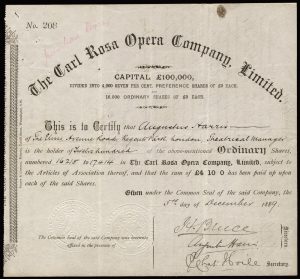 No. 208
The Carl Rosa Opera Company, Limited.
CAPITAL £100,000,
DIVIDED INTO 4,000 SEVEN PER CENT. PREFERENCE SHARES OF £5 EACH
AND
16,000 ORDINARY SHARES OF £5 EACH.
This is to Certify that Augustus Harris
of The Elms Avenue Road Regents Park London Theatrical Manager
is the holder of Twelve hundred of the abovementioned Ordinary Shares,
numbered to 17414 in The Carl Rosa Opera Company, Limited, subject
to the Articles of Association thereof, and that the sum of £4 10 0 has been paid up upon
each of the said Shares.
Given under the Common Seal of the said Company, the
5th day of December 1889.
Augustus Harris
Secretary.
The Common Seal of the said Company was hereunto
affixed in the presence of